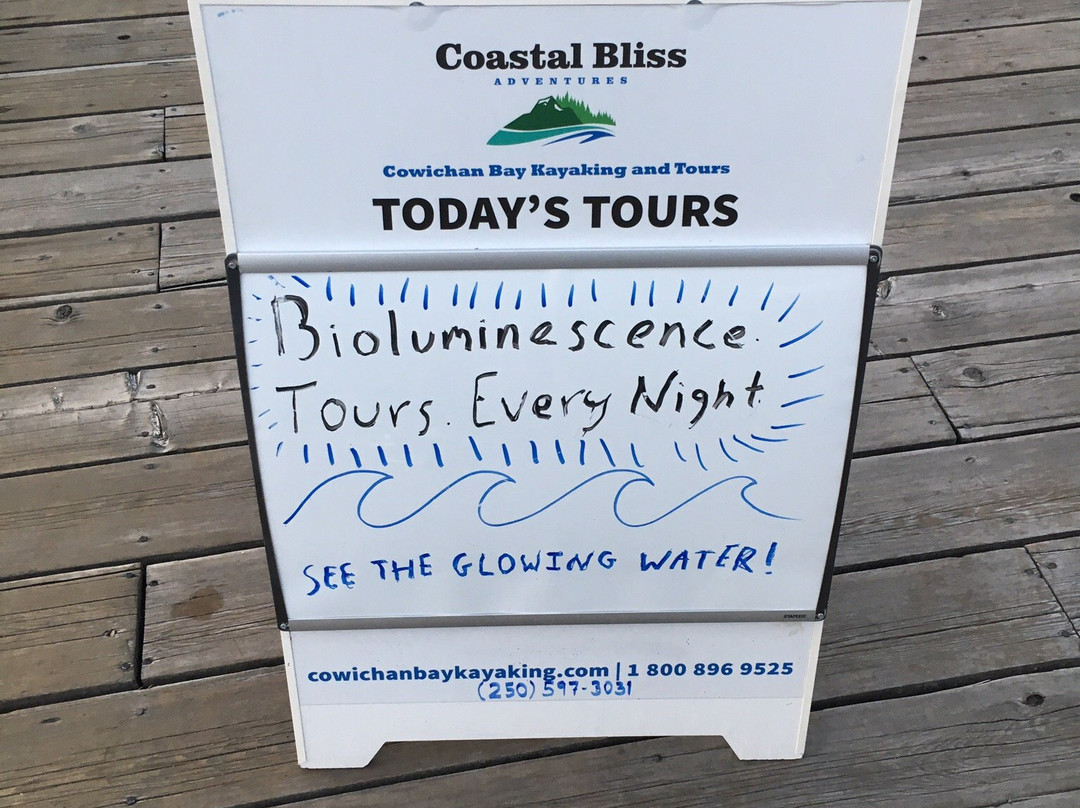 Coastal Bliss
ADVENTURES
Cowichan Bay Kayaking and Tours
TODAY'S TOURS
Bioluminescence.
Tours. Every Night.
SEE THE GLOWING WATER!
cowichanbaykayaking.com | 1 800 896 9525
(250) 597-3031